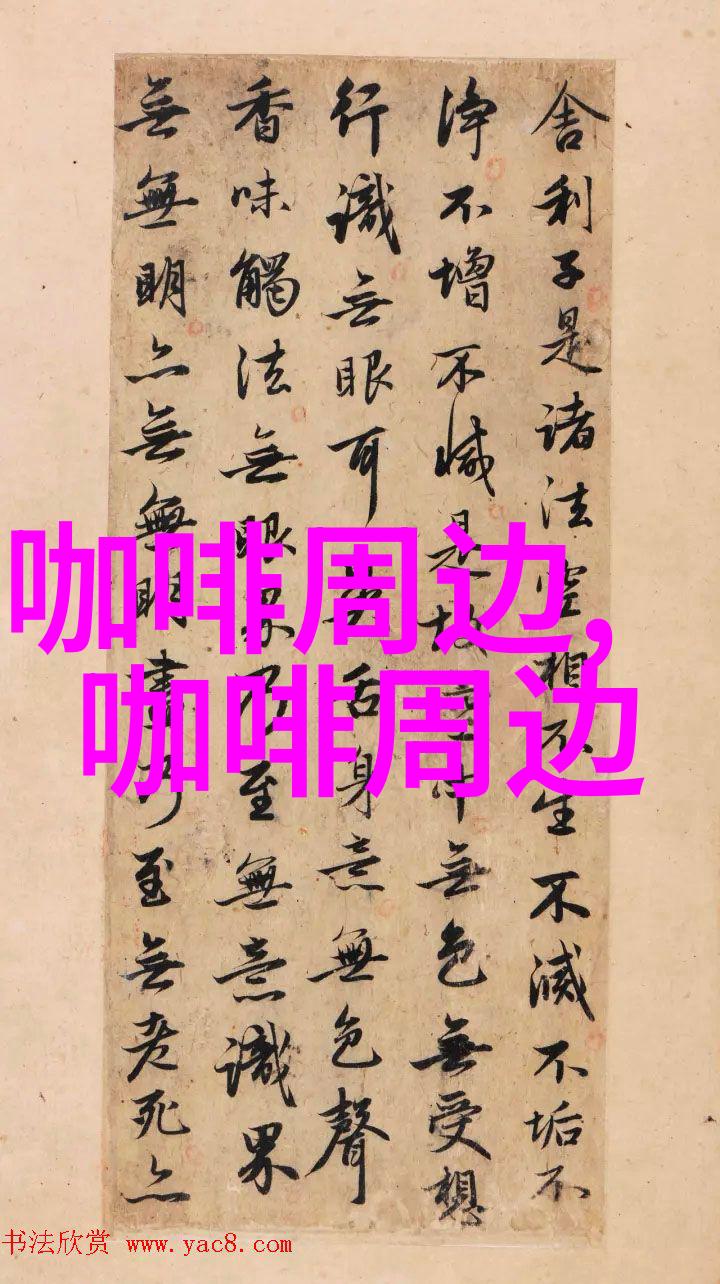 舍利子是諸法空相不生不滅不垢不
淨不增不減是故空中無色無受想
行識無眼耳鼻舌身意無色聲
香味觸法無眼界乃至無意識界
無無明亦無無明盡乃至無老死亦
咖啡周边,
咖啡周边
书法欣赏 www.yac8.com